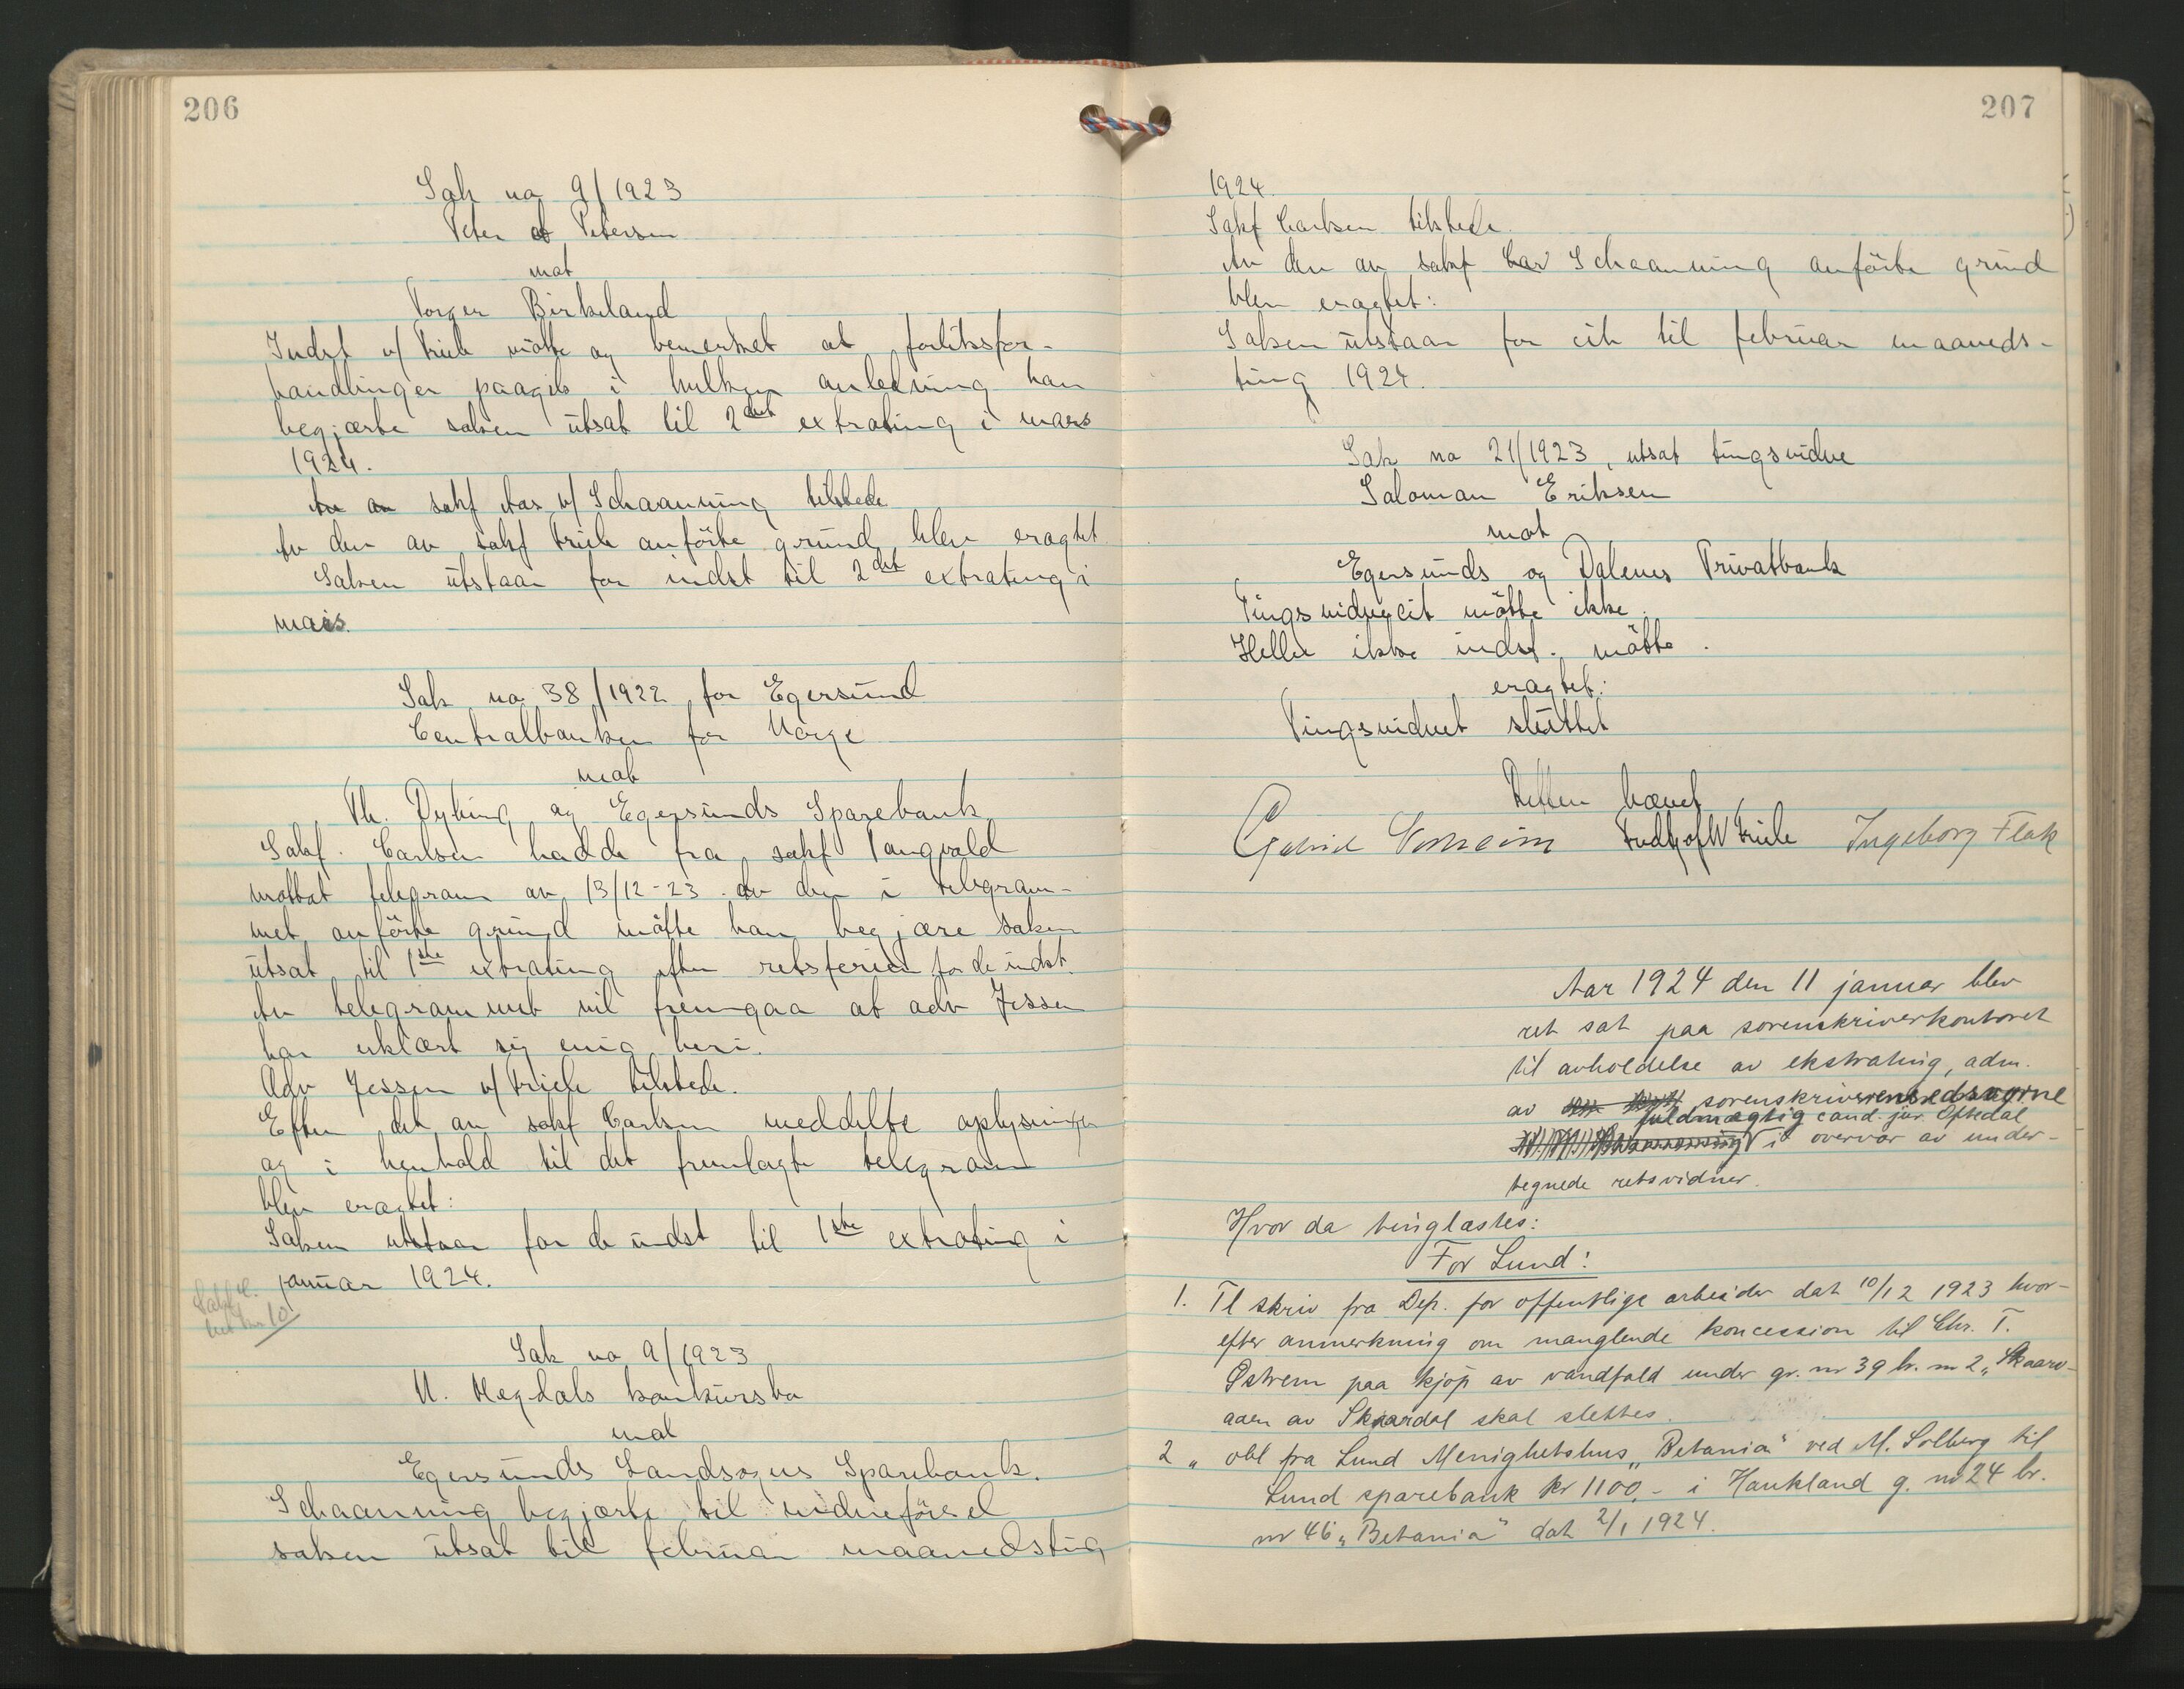 206
Sak no 9/1923
Peter Petersen
mot
Torger Birkeland
Indst v/ Friele mötte og bemerket at forliksfor-
handlinger paagik i hvilken anledning han
begjærte saken utsat til 2det extrating i mars
1924.
sakf Aas v/ Schaanning tilstede
Av den av sakf Friele anförte grund blev eragtet
Saken utstaar for indst til 2det extrating i
mars.
Sak no 38/1922 for Egersund
Centralbanken for Norge
mot
Th. Dyhing og Egersunds Sparebank
Sakf. Carlsen hadde fra sakf Tangvald
mottat telegram av 13/12-23. Av den i telegram-
met anförte grund måtte han begjære saken
utsat til 1ste extrating efter retsferien for de indst.
Av telegrammet vil fremgaa at adv Jessen
har erklært sig enig heri.
Adv Jessen v/ Friele tilstede.
Efter det av sakf Carlsen meddelte oplysninger
og i henhold til det fremlagte telegram
blev eragtet:
Saken utstaar for de indst til 1ste extrating i
januar 1924.
Sak no 9/1923
N. Hegdals konkursbo
mot
Egersunds Landsogns Sparebank.
Schaanning begjærte til vidneförsel
saken utsat til februar maanedsting
207
1924.
Sakf Carlsen tilstede.
Av den av sakf Schaanning anförte grund
blev eragtet:
Saken utstaar for cit til februar maaneds-
ting 1924.
Sak no 21/1923, utsat tingsvidne
Saloman Eriksen
mot
Egersunds og Dalenes Privatbank
Tingsvidnecit mötte ikke.
Heller ikke indst. mötte.
eragtet:
Tingsvidnet sluttet
Retten hævet
Gabriel Friele Ingeborg Flak
Aar 1924 den 11 januar blev
ret sat paa sorenskriverkontoret
til avholdelse av ekstrating, adm.
av sorenskriverens edsvorne
fuldmægtig cand. jur. Oftedal
i overvær av under-
tegnede retsvidner.
Hvor da tinglæstes:
For Lund:
1. Tl skriv fra Dep. for offentlige arbeider dat 10/12 1923 hvor-
efter anmerkning om manglende koncession til Chr. T.
Østrem paa kjøp av vandfald under gr. nr 39 br. nr 2 „Skaar-
aaen av Skaardal skal slettes.
2 „ obl fra Lund Menighetshus „Betania" ved M. Solberg til
Lund sparebank kr 1100,- i Haukland g. nr 24 br.
nr 46 „Betania" dat 2/1 1924.